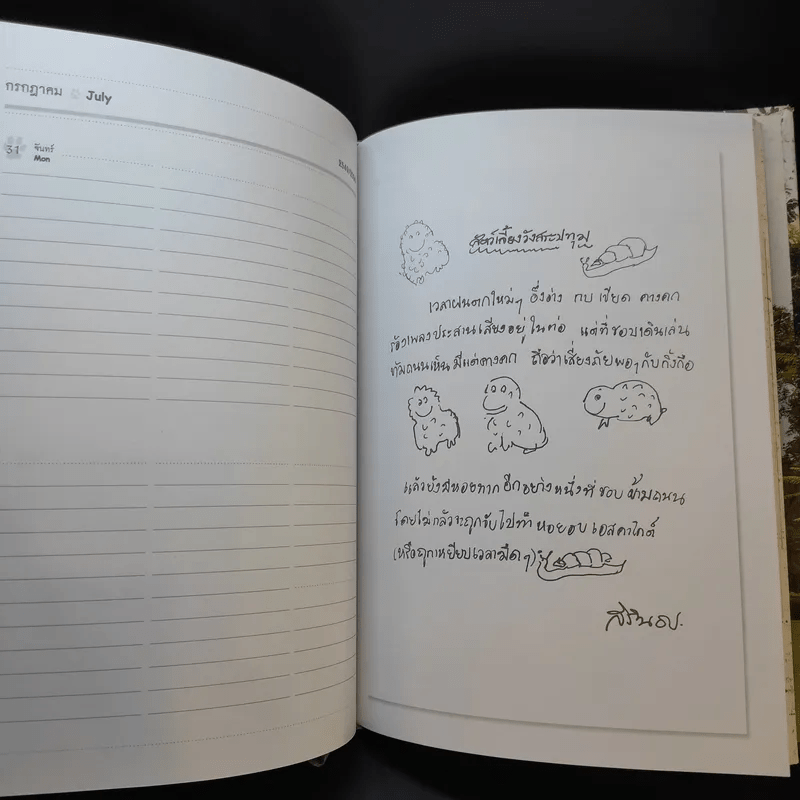 กรกฎาคม July
31 จันทร์
Mon
สัตว์เลี้ยงวังสระปทุม
เวลาฝนตกใหม่ๆ อึ่งอ่าง กบ เขียด คางคก
ร้องเพลงประสานเสียงอยู่ในท่อ แต่ที่ชอบเดินเล่น
ข้ามถนนเห็นมีแต่คางคก ถือว่าเสี่ยงภัยพอๆกับกิ้งกือ
แล้วยังมีหอยทาก อีกอย่างหนึ่งที่ชอบข้ามถนน
โดยไม่กลัวจะถูกจับไปทำ หอยอบ เอสคาโกต์
(หรือถูกเหยียบเวลามืดๆ)
สิรินธร